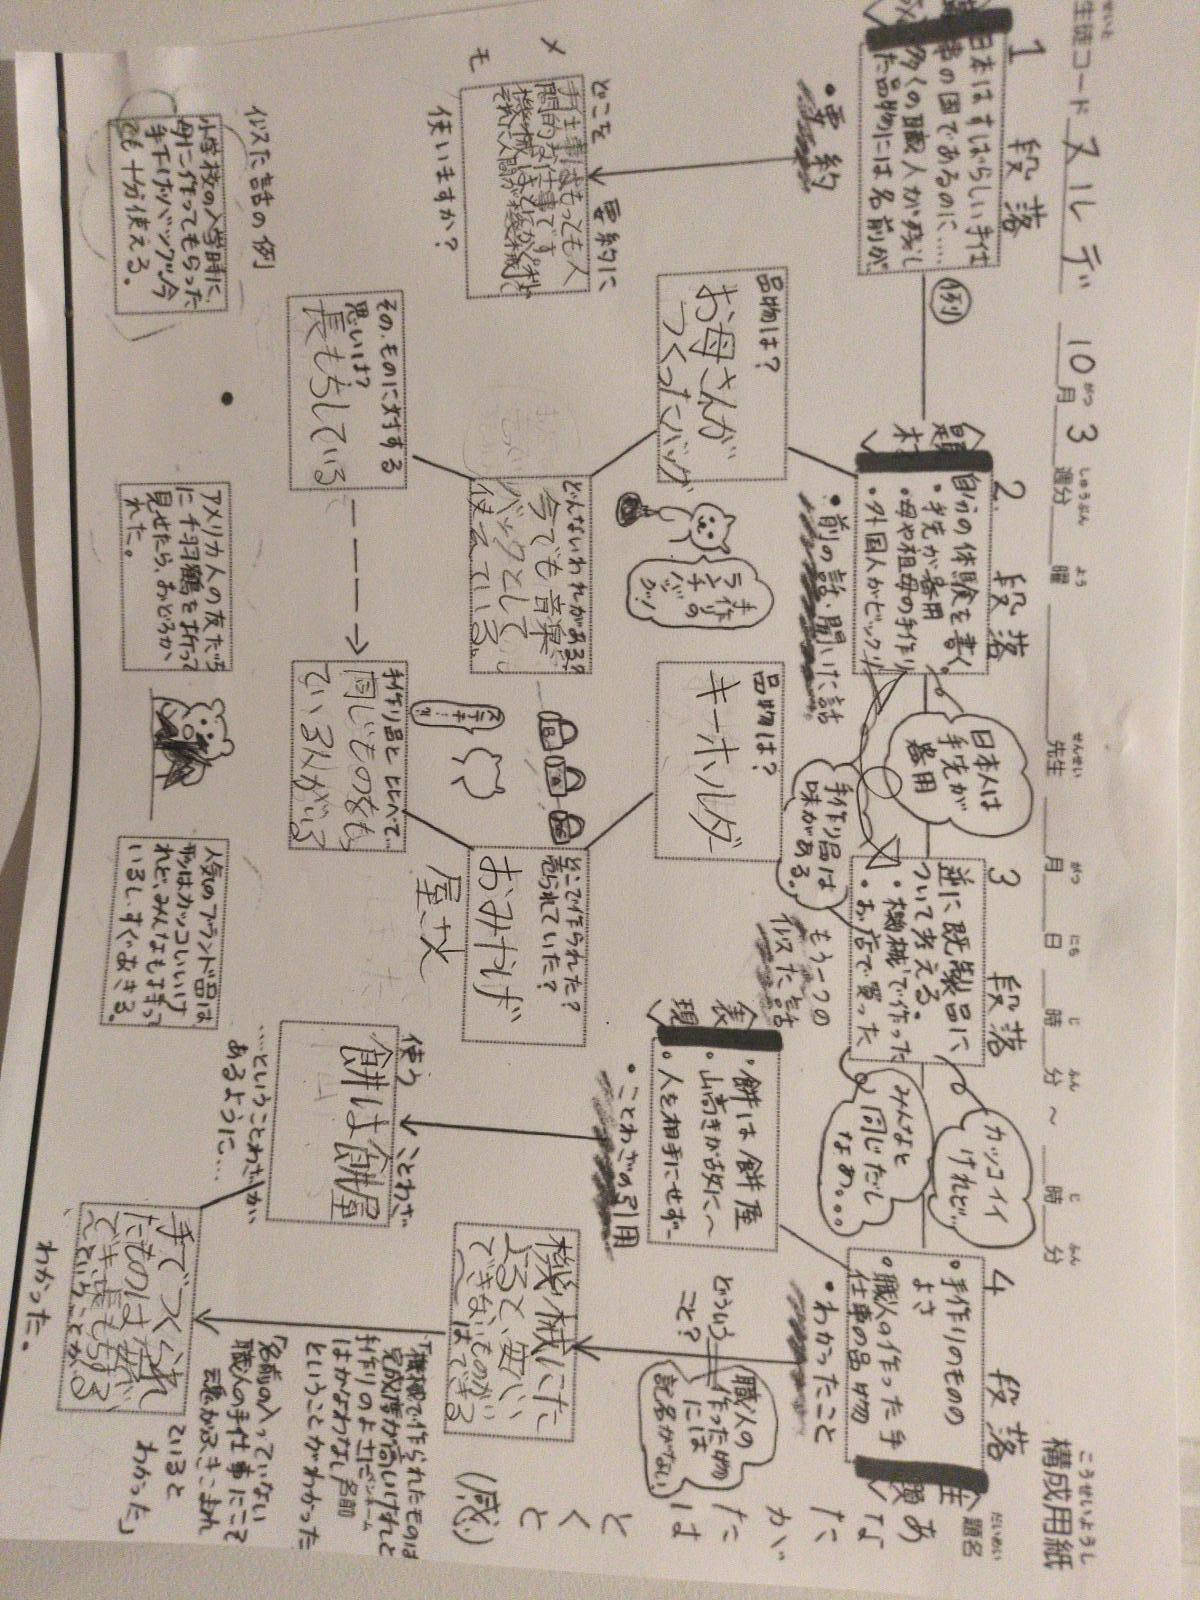 構成用紙
こうせいようし
題名
だいめい
あ
な
た
が
た
は
と
く
と
(感)
せいと
生徒コード ヌルデ 10月 3週分 曜 先生 月 日 時 分 ~ 時 分
がつ しゅうぶん よう せんせい がつ にち じ ふん じ ふん
1 段落
日本はすばらしい手仕
事の国であるのに……
多くの職人が残し
た品物には名前が
・要約
どこを 要約に
使いますか?
メ
モ
手仕事はもっとも人
間的な仕事です
例
2 段落
題
自分の体験を書く。
・手先が器用
・母や祖母の手作り
・外国人がビックリ
・前の話・聞いた話
日本人は
手先が
器用
品物は?
お母さんが
つくったバッグ
手作り
の
ランチ
バッグ!
どんないわれがある?
今でも音楽
バックとして
使えている。
その、ものに対する
思いは?
長もちしている
似た話の例
小学校の入学時に、
母に作ってもらった
手下げバッグ。今
でも十分使える。
アメリカ人の友だち
に千羽鶴を折って
見せたら、おどろか
れた。
3 段落
逆に既製品に
ついて考える。
・機械で作った
・お店で買った
手作り品は
味がある。
もう一つの
似た話
カッコイイ
けれど…
みんなと
同じだし
なあ。。。
品物は?
キーホルダー
どこで作られた?
売られていた?
おみやげ
屋さん
手作り品と比べて…
同じものをも
ている人がいる
ステキ…?!
人気のブランド品は
形はカッコいいけ
れど、みんなもって
いるし、すぐあきる。
4 段落
・手作りのものの
よさ
・職人の作った手
仕事の品物
・わかったこと
どういう
こと?
職人の
作った物
には
記名がない
表
現
・餅は餅屋
・山高きが故に〜
・人を相手にせず〜
・ことわざの引用
使う ことわざ
餅は餅屋
…ということわざが
あるように…
機械にた
よると無い
できないものが
できる
は
手でつくられ
たものは魂が
でき、長もちする
ということが、
わかった。
「機械で作られたものは
完成度が高いけれど
手作りのよさに
はかなわない」
ということがわかった
「名前の入っていない
職人の手仕事にこそ
魂がふきこまれ
ていると
わかった」